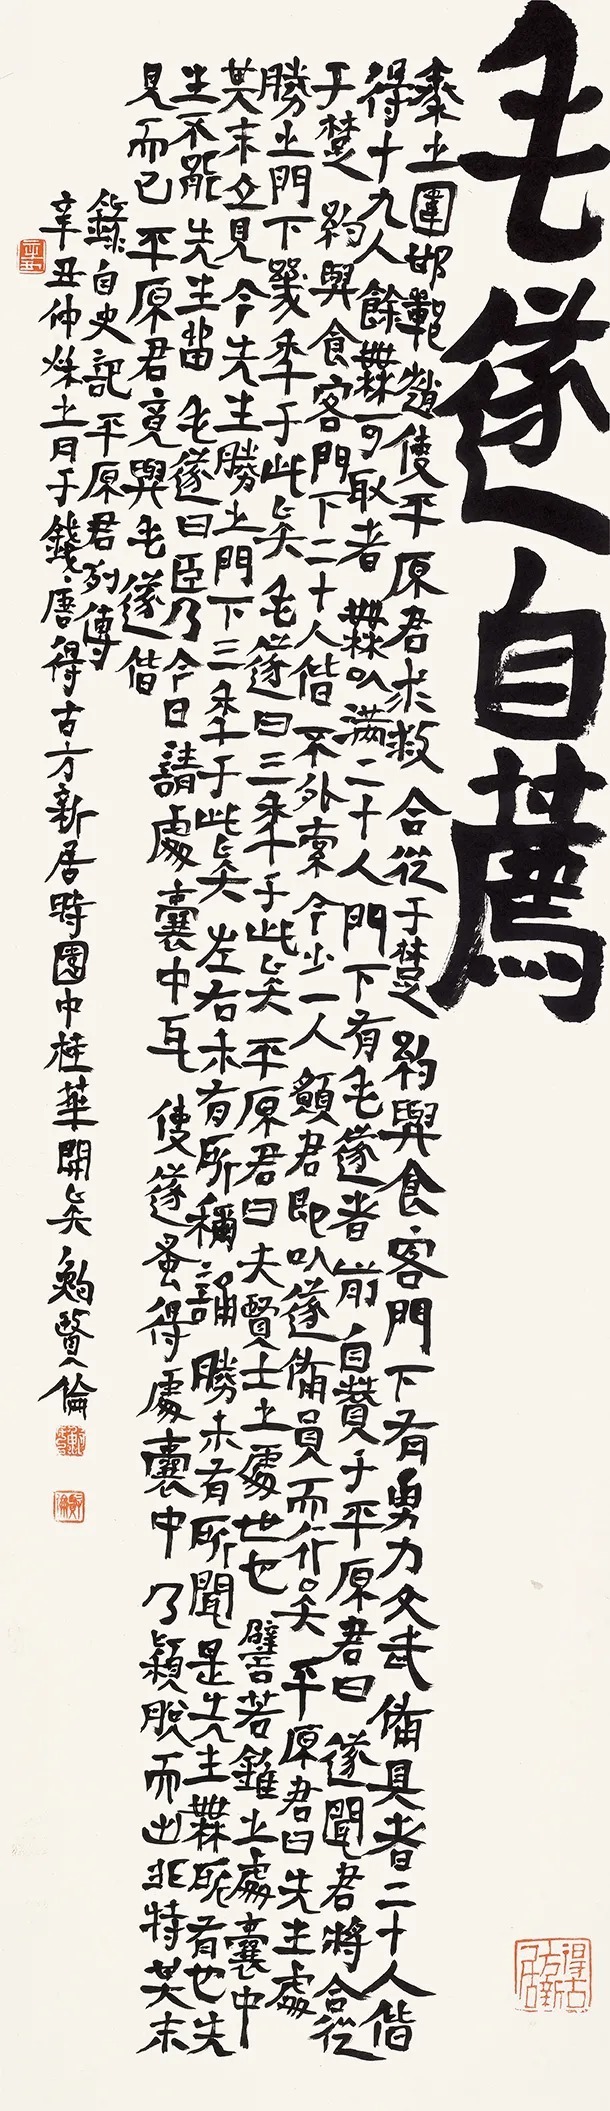 毛遂自薦
秦之圍邯鄲趙使平原君求救合從于楚約與食客門下有勇力文武備具者二十人偕
得十九人餘無可取者無以滿二十人門下有毛遂者前自贊于平原君曰遂聞君將合從
于楚約與食客門下二十人偕不外索今少一人願君即以遂備員而行矣平原君曰先生處
勝之門下幾年于此矣毛遂曰三年于此矣平原君曰夫賢士之處世也譬若錐之處囊中
其末立見今先生勝之門下三年于此矣左右未有所稱誦勝未有所聞是先生無所有也先
生不能先生留毛遂曰臣乃今日請處囊中耳使遂蚤得處囊中乃穎脫而出非特其末
見而已平原君竟與毛遂偕
錄自史記平原君列傳
辛丑仲秋之月于錢唐得古方新居時園中桂華開矣鮑賢倫
得古方新居